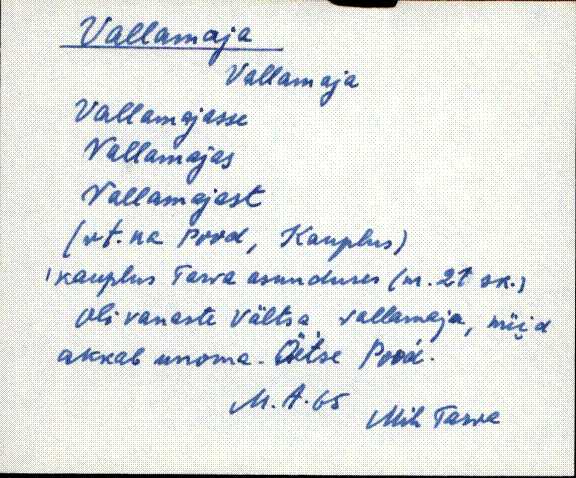 Vallamaja
Vallamaja
Vallamajasse
Vallamajas
Vallamajast
(vt. ka Pood, Kauplus)
'kauplus Tarva asunduses (n. 21 sk.)
Oli vanaste Vältsa vallamaja, nüid
akkab unoma. Öetse Pood.
M. A. 65
Mih Tarva